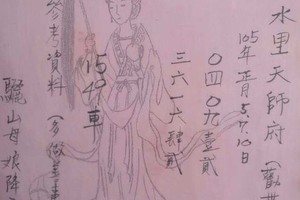 水里天師府(勸世
105年正月5.7.10日
0409壹貳
三六一六肆貳
1549車
參考資料(多做善事
驪山母娘降